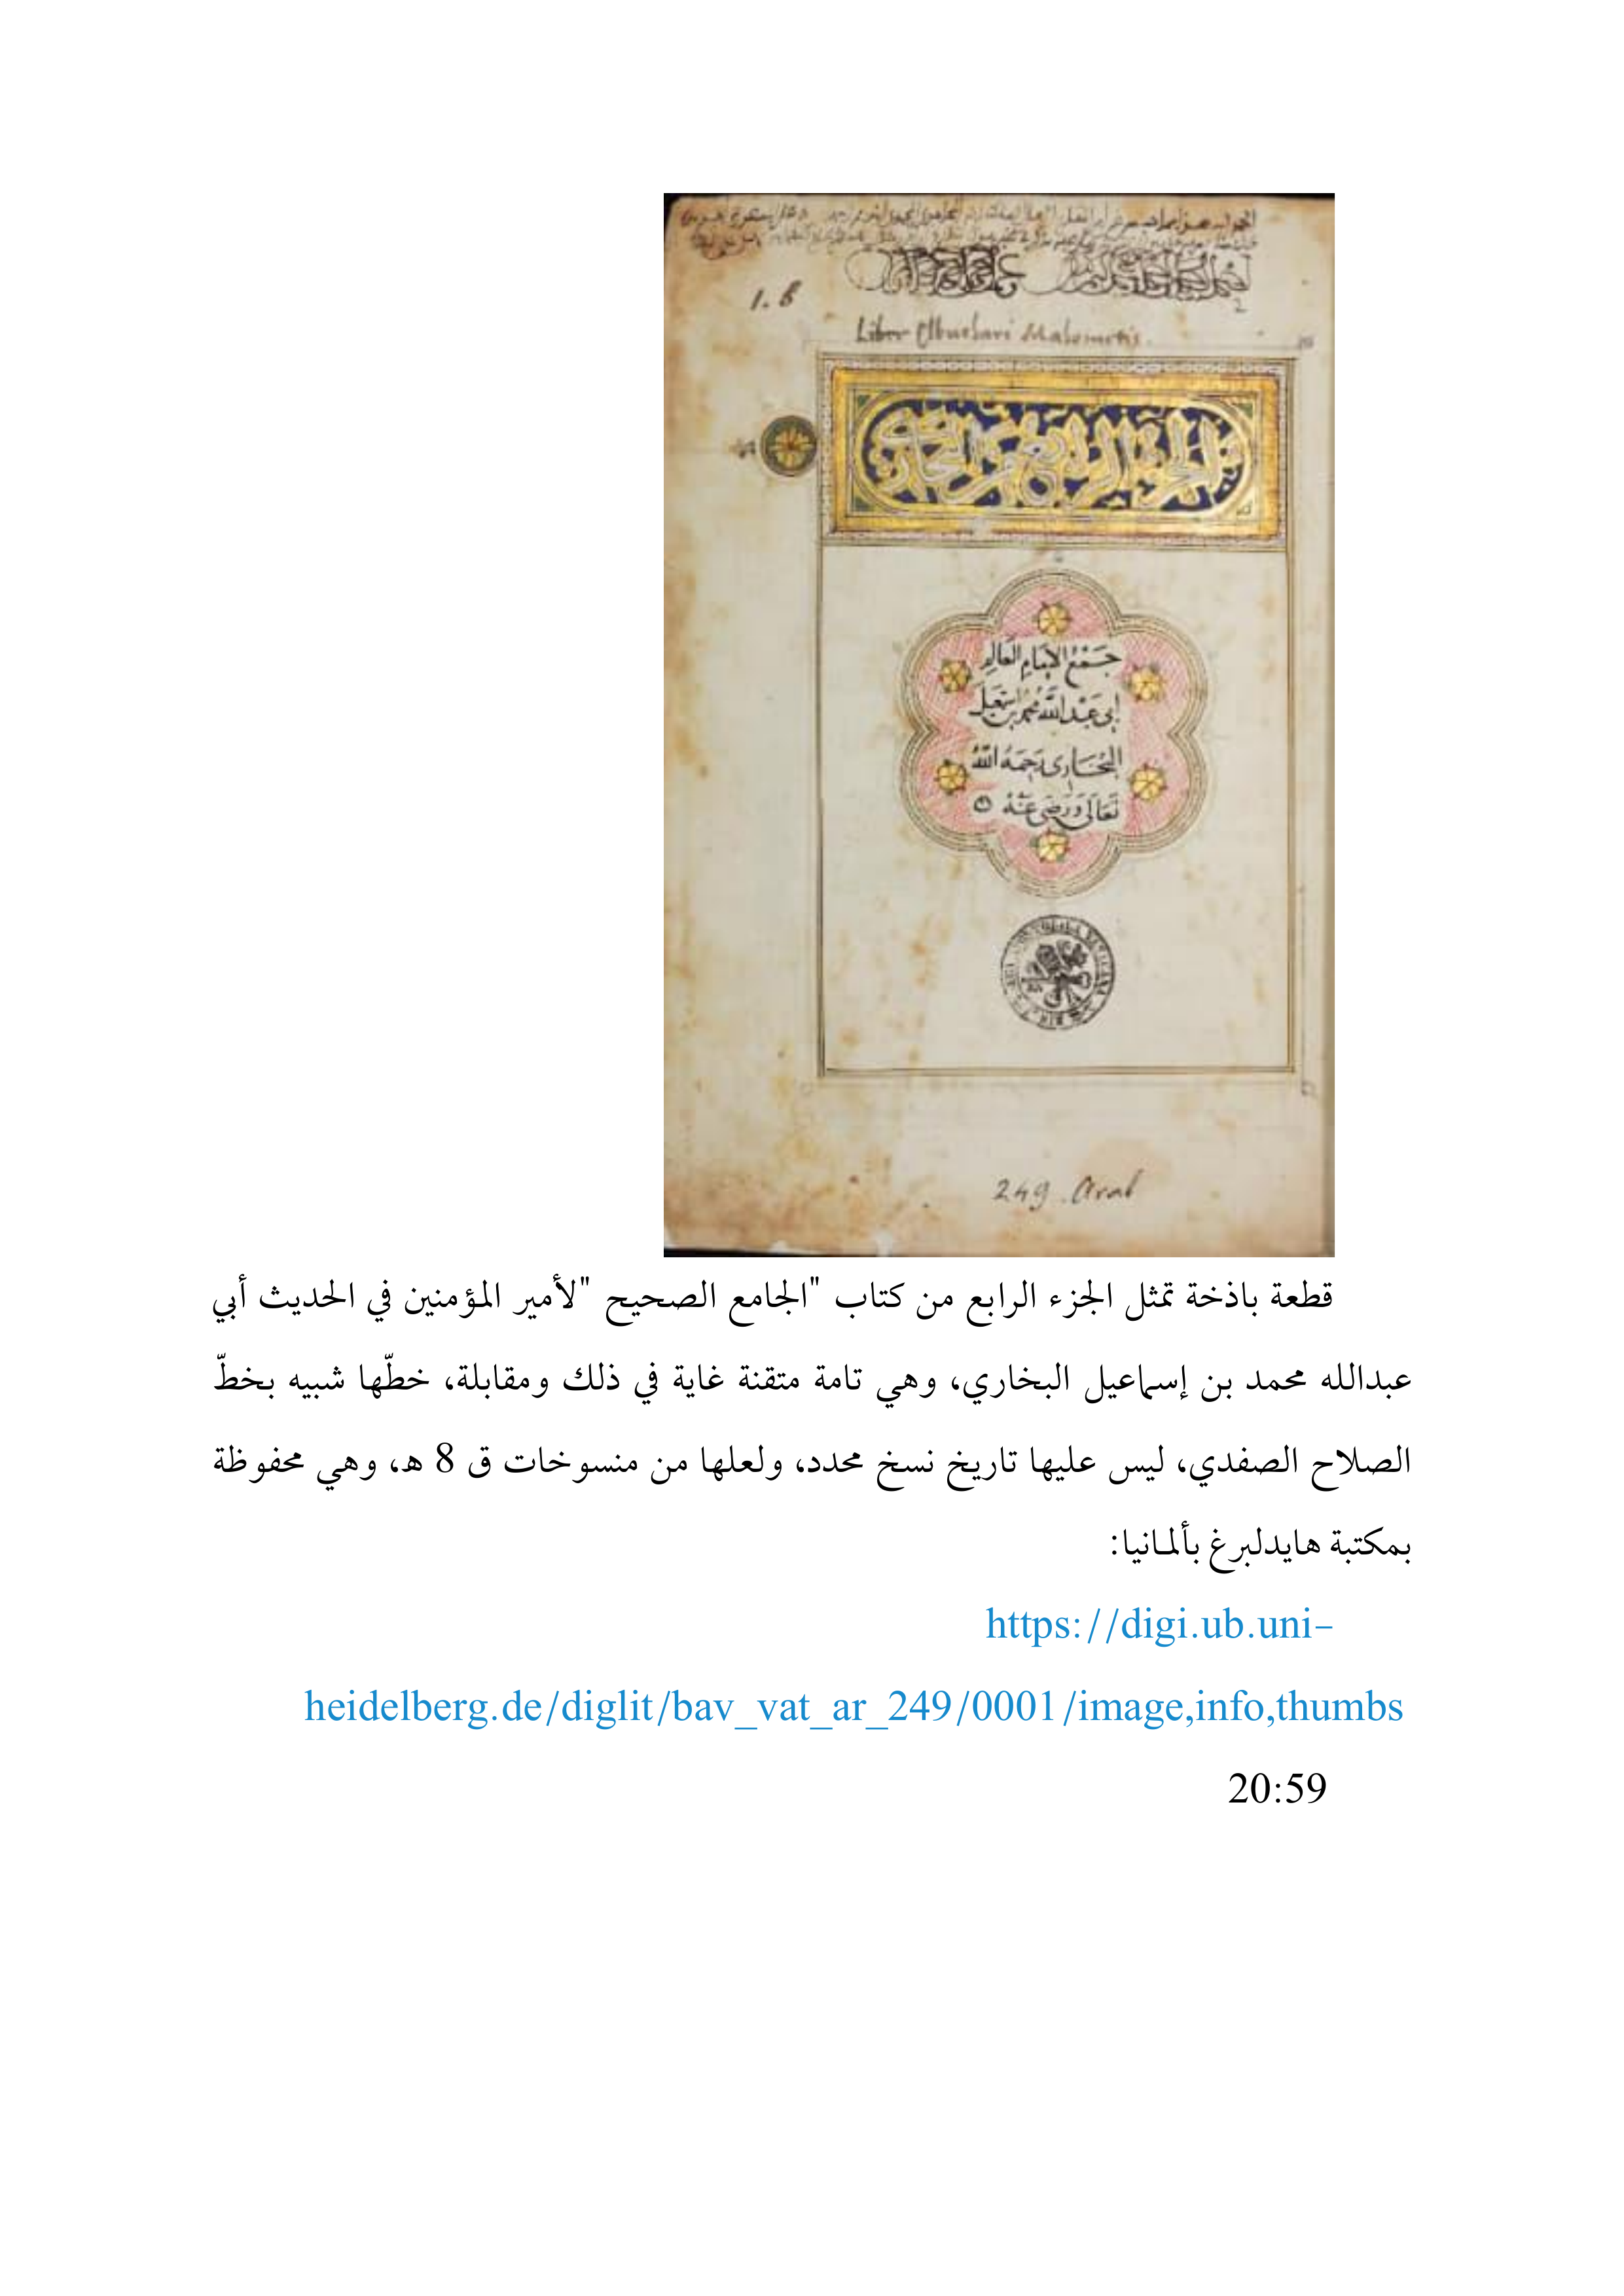 1.8
Liber Elbuchari Mahometis.
الجزء الرابع من البخاري
جَمْعُ الإمَامِ العَالِمِ
أبى عَبْدِ اللَّه محمد بن اسمعيل
البُخَارى رَحِمَهُ اللَّهُ
تَعَالَى وَرَضىَ عَنْهُ
249. Arab
قطعة باذخة تمثل الجزء الرابع من كتاب "الجامع الصحيح "لأمير المؤمنين في الحديث أبي
عبدالله محمد بن إسماعيل البخاري، وهي تامة متقنة غاية في ذلك ومقابلة، خطّها شبيه بخطّ
الصلاح الصفدي، ليس عليها تاريخ نسخ محدد، ولعلها من منسوخات ق 8 هـ، وهي محفوظة
بمكتبة هايدلبرغ بألمانيا:
https://digi.ub.uni-
heidelberg.de/diglit/bav_vat_ar_249/0001/image,info,thumbs
20:59